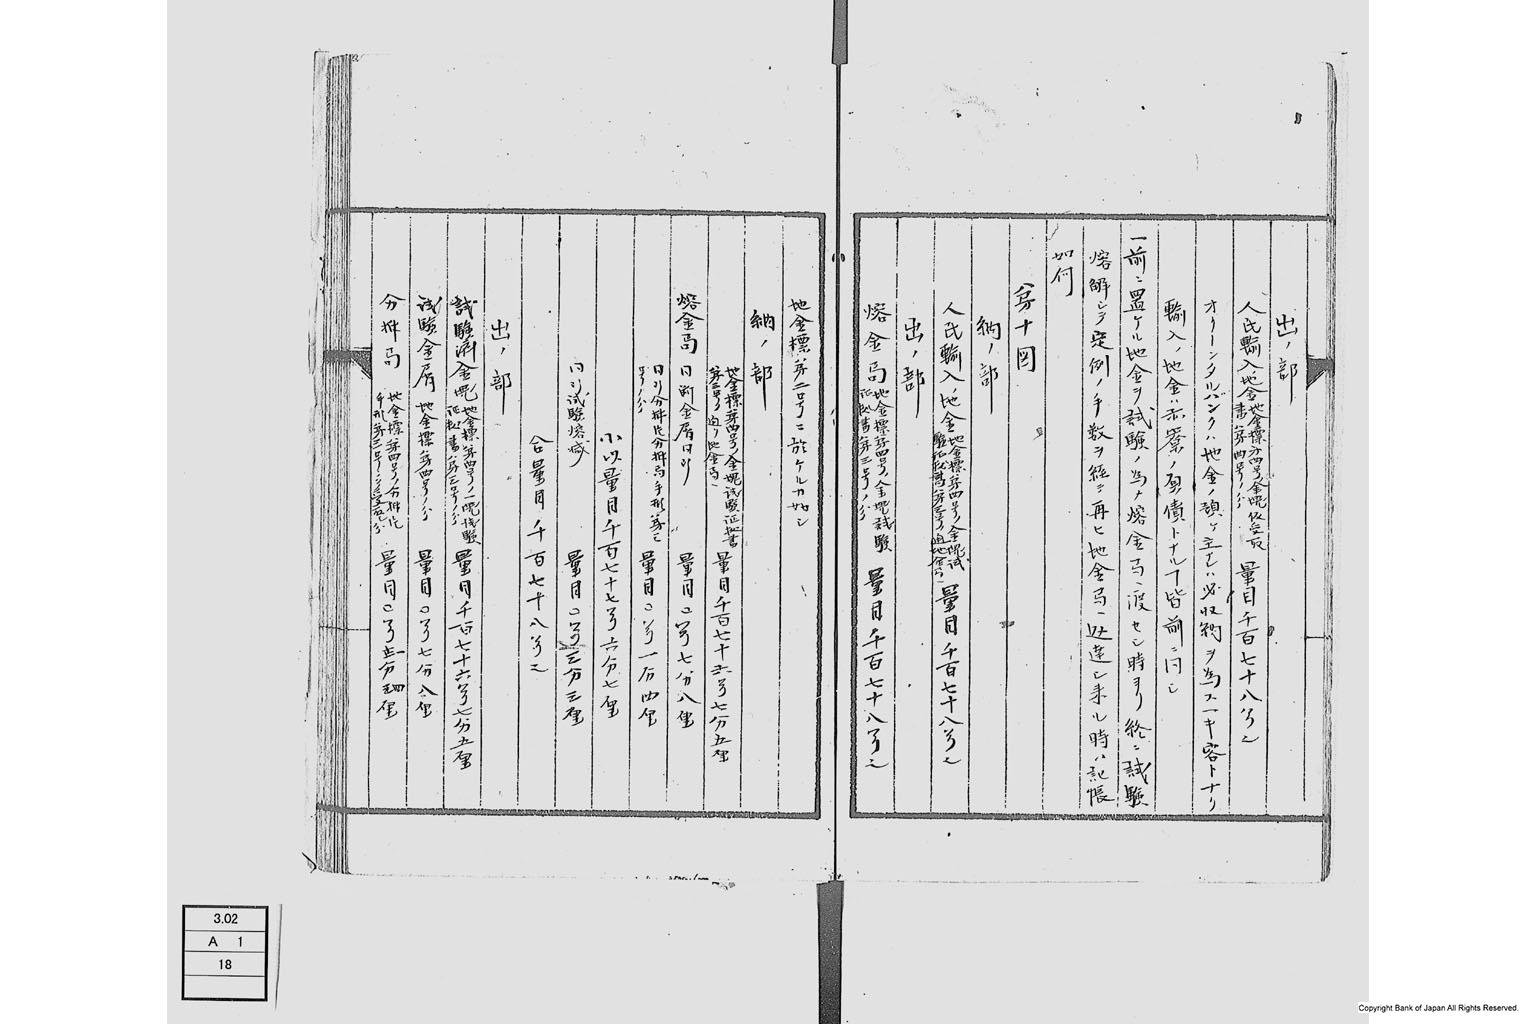 出ノ部
人民輸入ノ地金 地金標第四号ノ金塊依受取書第四号ノ分 量目千百七十八ヲンス
オリーンタルバンクハ地金ノ頭ケ主 ハ必収納ヲ為スヘキ客トナリ
輸入ノ地金ハ 寮ノ負債トナル丁皆前ニ同シ
一前ニ置ケル地金ヲ試験ノ為メ熔金局ニ渡セシ時ヨリ終ニ試験
熔解シテ定例ノ手数ヲ経ニ再ヒ地金局ニ送達シ来ル時ハ記帳
如何
第十図
納ノ部
人民輸入ノ地金 地金標第四号ノ金塊試験証拠書第三号ノ通地金局ニ 量目千百七十八ヲンス
出ノ部
熔金局 地金標第四号ノ金塊試験証拠書第三号ノ分 量目千百七十八ヲンス
地金標第二号ニ於ケルカ如シ
納ノ部
地金標第四号ノ金塊試験証拠書第三号ノ通リ地金局ニ 量目千百七十六ヲ七分五厘
熔金局 同断金屑同ク 量目〇ヲ七分八厘
同ク分析片分析局手形第三号ノ分 量目〇ヲ一分四厘
小以量目千百七十七ヲ六分七厘
同ク試験熔減 量目〇ヲ三分三厘
合量目千百七十八ヲンス
出ノ部
試験済金塊 地金標第四号ノ一塊試験証拠書第三号ノ分 量目千百七十六ヲ七分五厘
試験金屑 地金標第四号ノ分 量目〇ヲ七分八厘
分析局 地金標第四号ノ分析片手形第三号 量目〇ヲ一分四厘
3.02
A 1
18
Copyright Bank of Japan All Rights Reserved.